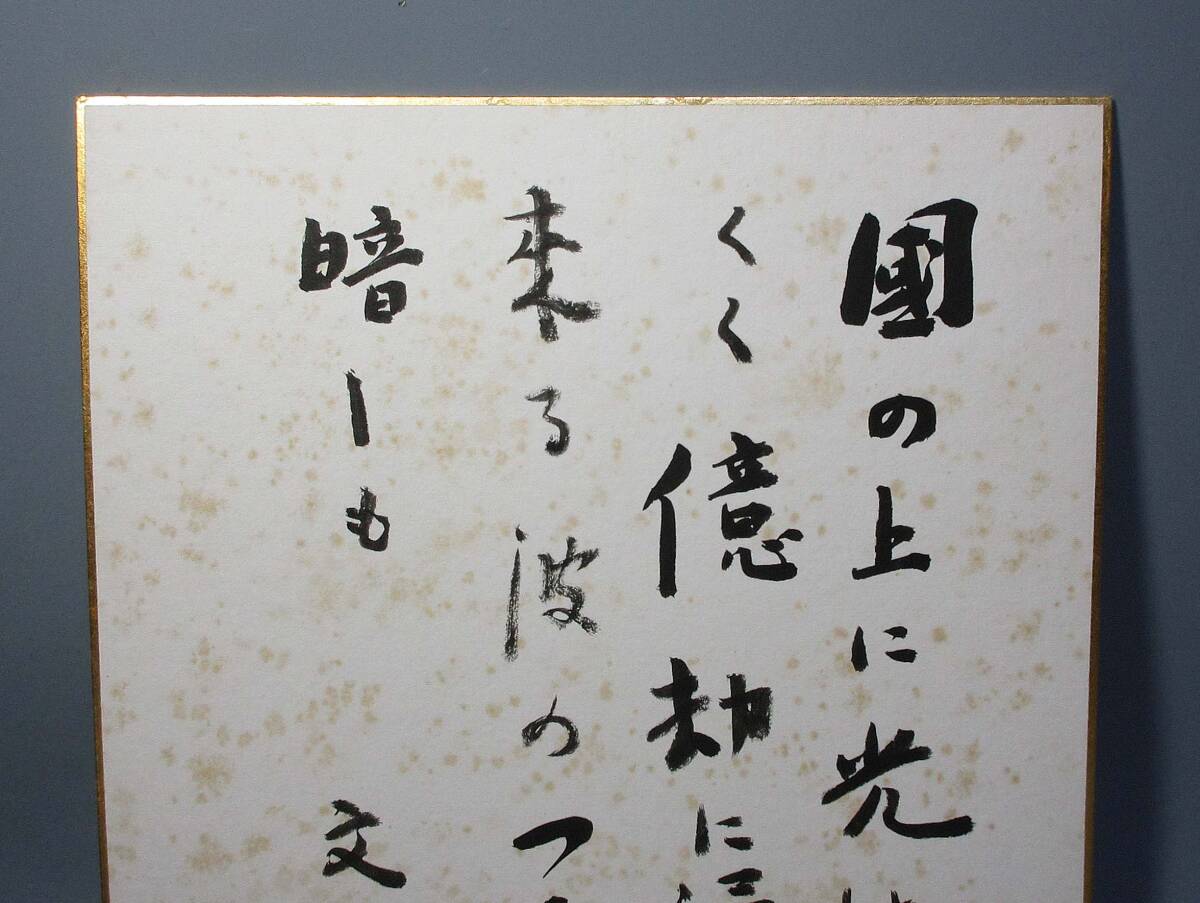 國の上に光
くく億劫に
來る波のつ
暗しも 文